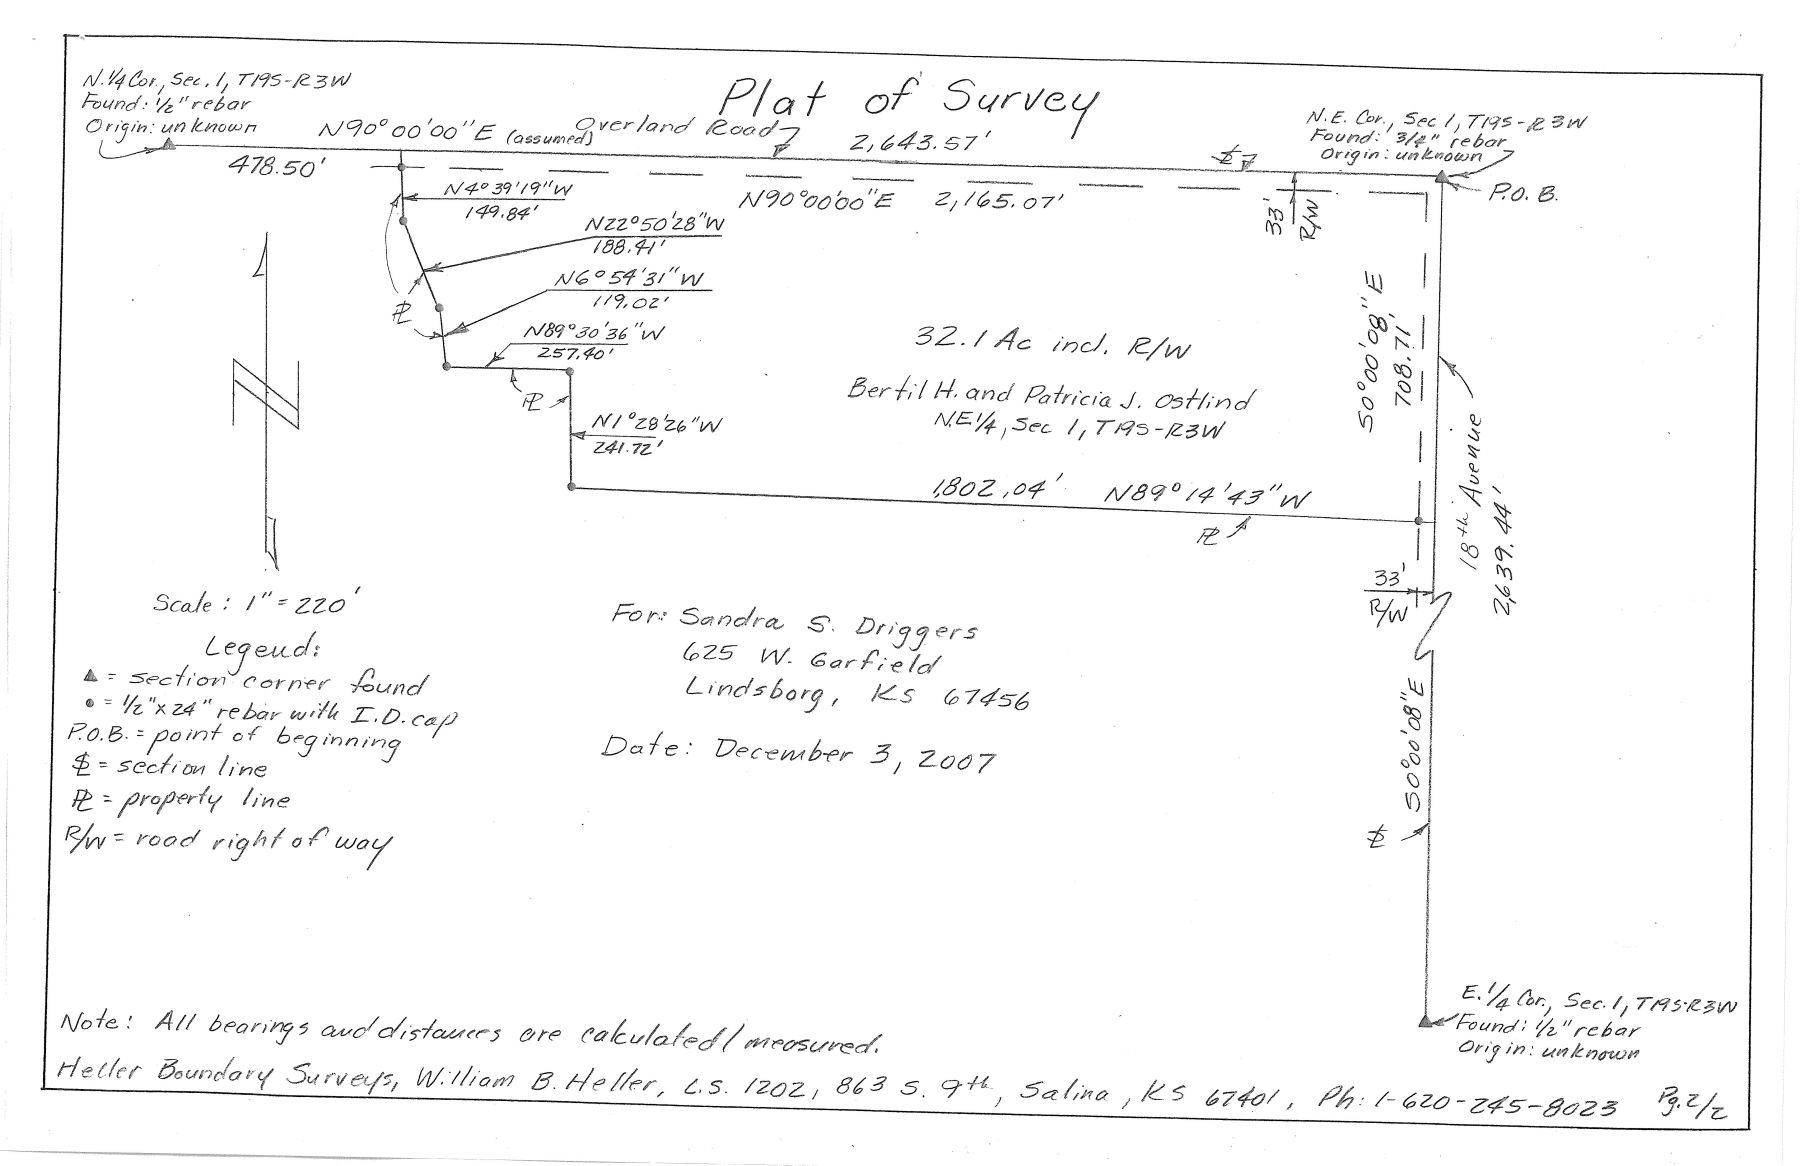 Plat of Survey
N.1/4 Cor., Sec. 1, T19S-R3W
Found: 1/2" rebar
Origin: unknown
N90°00'00"E (assumed)
Overland Road
2,643.57'
N.E. Cor., Sec 1, T19S-R3W
Found: 3/4" rebar
Origin: unknown
P.O.B.
478.50'
N90°00'00"E 2,165.07'
33'
R/W
N4°39'19"W
149.84'
N22°50'28"W
188.41'
N6°54'31"W
119.02'
N89°30'36"W
257.40'
N1°28'26"W
241.72'
32.1 Ac incl. R/W
Bertil H. and Patricia J. Ostlind
N.E1/4, Sec 1, T19S-R3W
S0°00'08"E
708.71'
18th Avenue
2,639.44'
1,802.04' N89°14'43"W
PL
33'
R/W
S0°00'08"E
Scale: 1"=220'
Legend:
▲ = section corner found
● = 1/2"x24" rebar with I.D. cap
P.O.B. = point of beginning
SL = section line
PL = property line
R/W = road right of way
For: Sandra S. Driggers
625 W. Garfield
Lindsborg, KS 67456
Date: December 3, 2007
E.1/4 Cor., Sec. 1, T19S-R3W
Found: 1/2" rebar
Origin: unknown
Note: All bearings and distances are calculated/measured.
Heller Boundary Surveys, William B. Heller, L.S. 1202, 863 S. 9th, Salina, KS 67401, Ph: 1-620-245-8023 Pg. 2/2